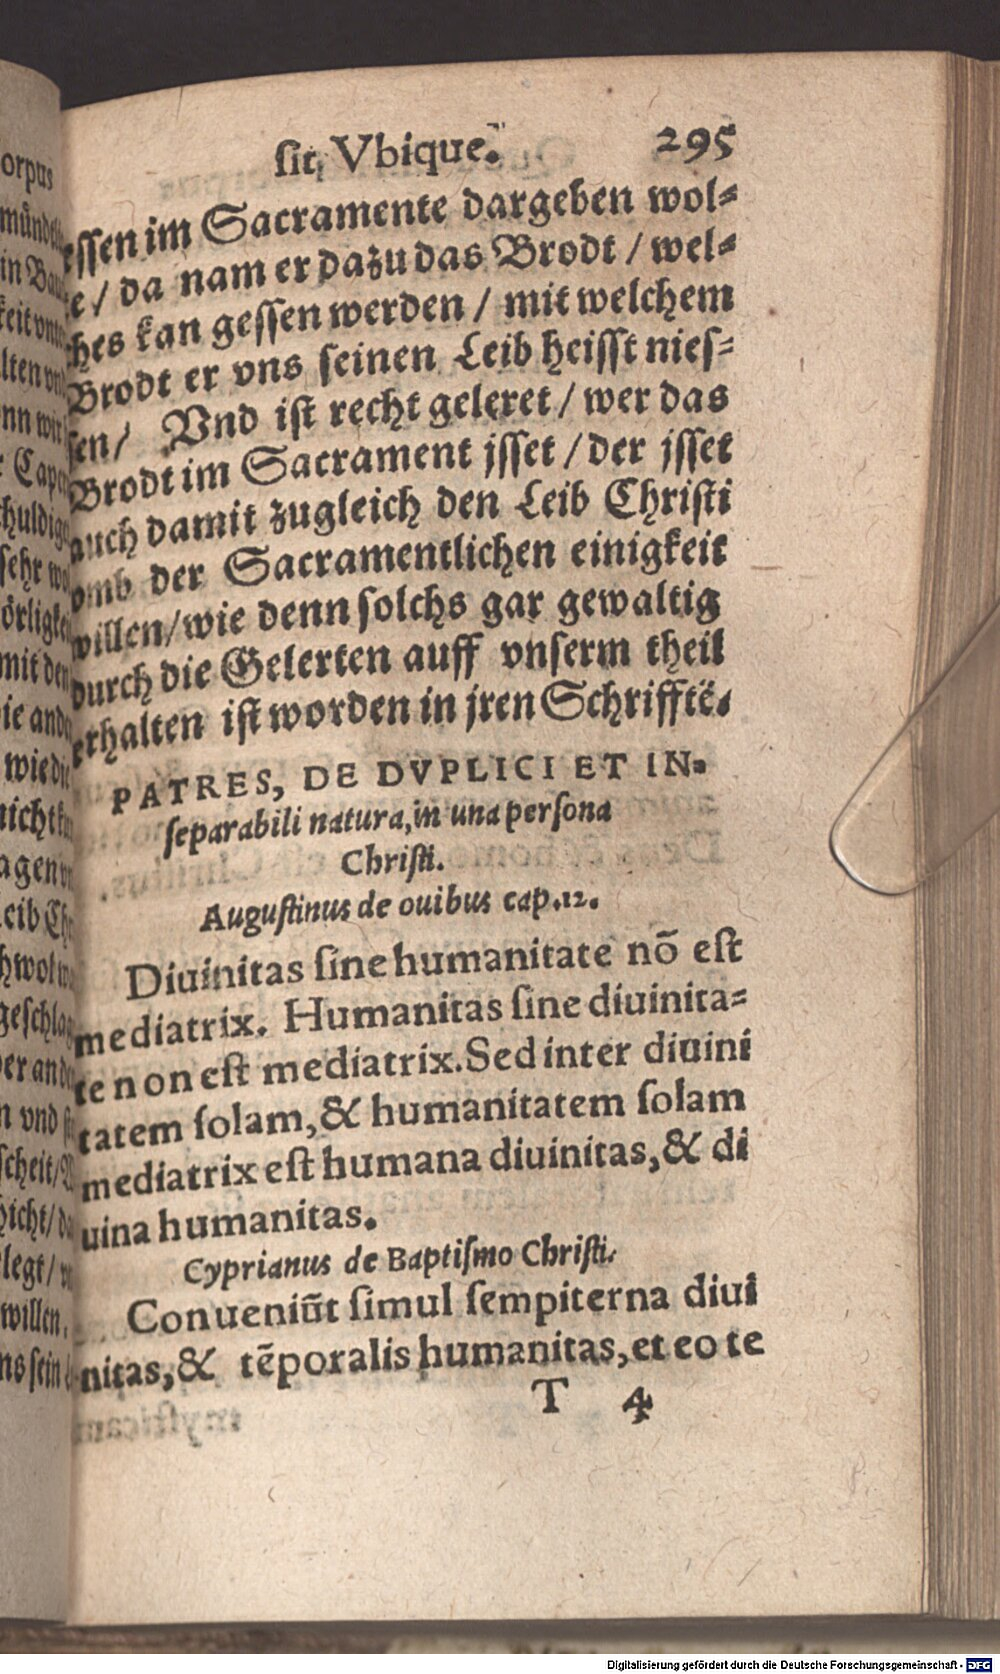 sit Vbique. 295
essen im Sacramente dargeben wol⸗
te / da nam er dazu das Brodt / wel⸗
ches kan gessen werden / mit welchem
Brodt er vns seinen Leib heisst nies⸗
sen / Vnd ist recht geleret / wer das
Brodt im Sacrament jsset / der jsset
auch damit zugleich den Leib Christi
vmb der Sacramentlichen einigkeit
willen / wie denn solchs gar gewaltig
durch die Gelerten auff vnserm theil
erhalten ist worden in jren Schrifftẽ.
PATRES, DE DVPLICI ET IN-
separabili natura, in una persona
Christi.
Augustinus de ouibus cap.12.
Diuinitas sine humanitate nõ est
mediatrix. Humanitas sine diuinita⸗
te non est mediatrix. Sed inter diuini
tatem solam, & humanitatem solam
mediatrix est humana diuinitas, & di
uina humanitas.
Cyprianus de Baptismo Christi.
Conueniũt simul sempiterna diui
nitas, & tẽporalis humanitas, et eo te
T 4
orpus
in
lten
agen
wie die
mit den
willen.
Digitalisierung gefördert durch die Deutsche Forschungsgemeinschaft - DFG